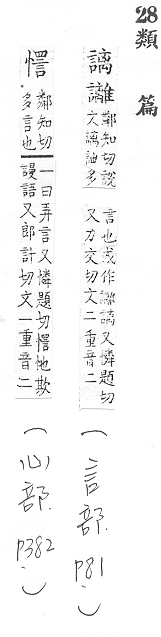 28 類 篇
謧離 鄰知切說
文謧詍多
言也或作 謧又憐題切
又力交切文二重音二
(言部 P81)
鄰知切
多言也
一曰弄言又憐題切 忚欺
謾語又郎計切文一重音二
(心部 P382)